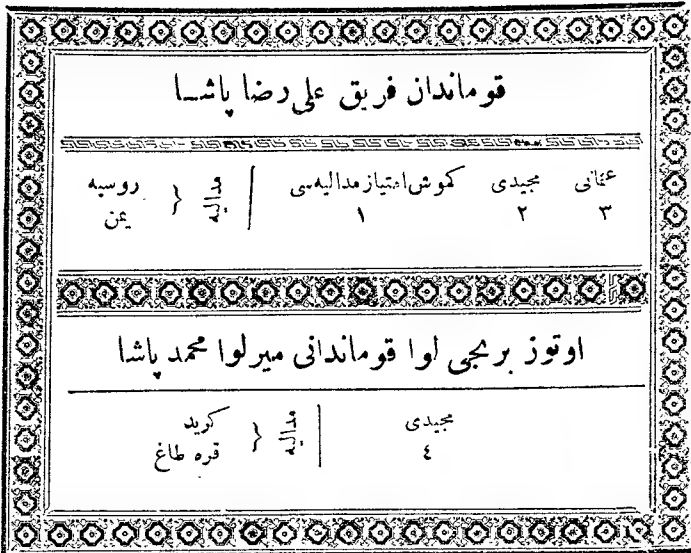 قوماندان فريق على رضا پاشا
عثمانى مجيدى كموش امتياز مداليه‌سى مداليه { روسيه
٣ ٢ ١ يمن
اوتوز برنجى لوا قوماندانى ميرلوا محمد پاشا
مجيدى مداليه { كريد
٤ قره طاغ